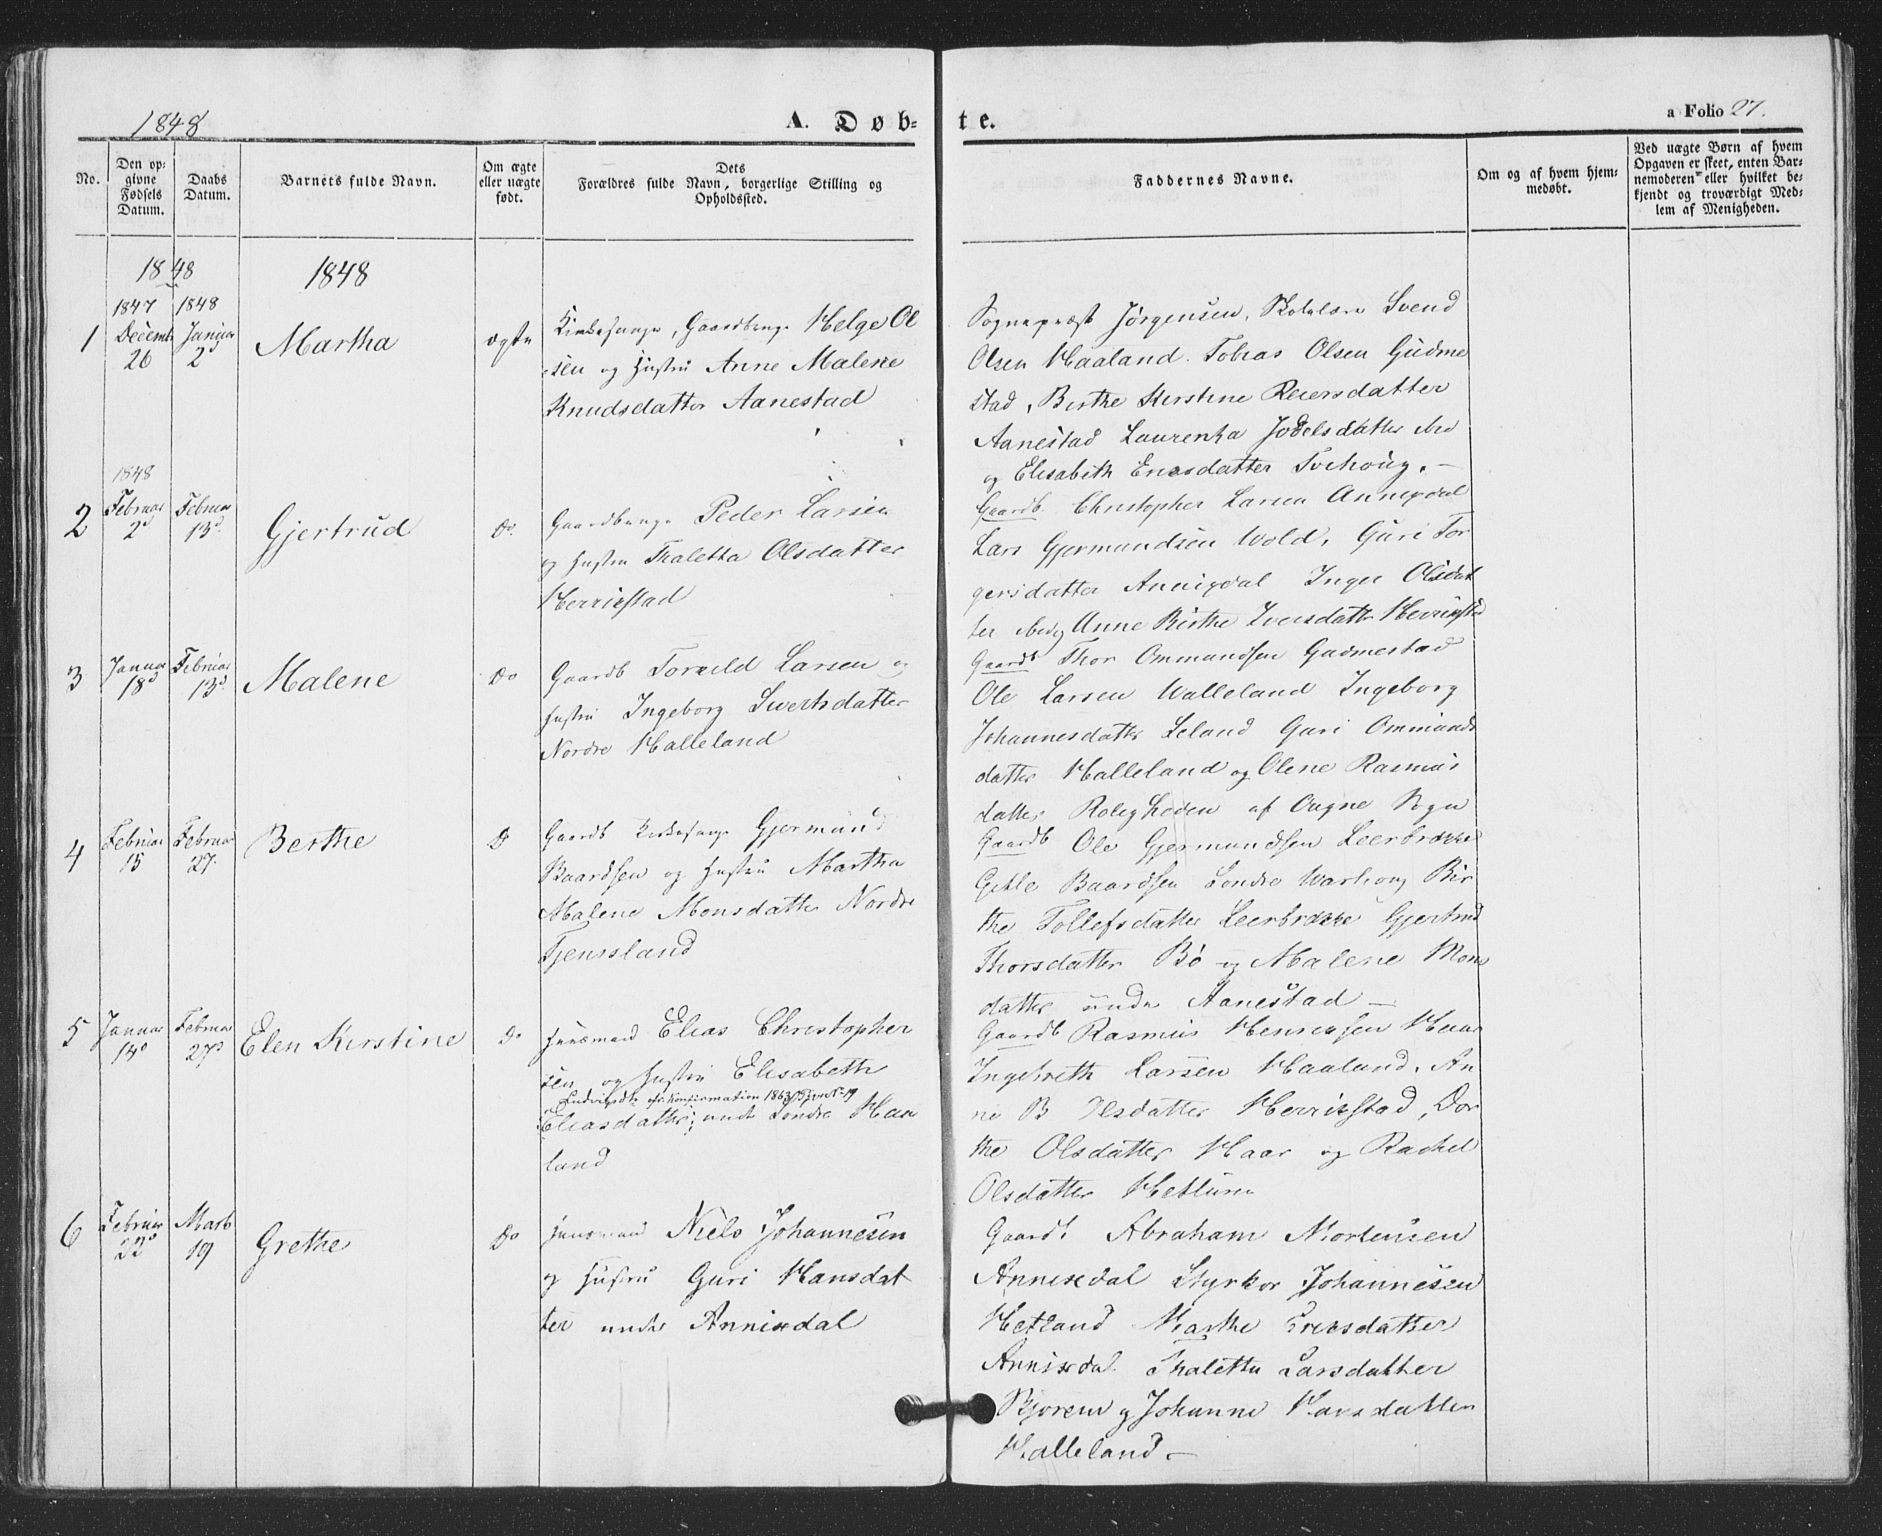 1848
A. Døb-
te.
a Folio 27.
No.
Den op-
givne
Fødsels
Datum.
Daabs
Datum.
Barnets fulde Navn.
Om ægte
eller uægte
født.
Dets
Forældres fulde Navn, borgerlige Stilling og
Opholdssted.
Faddernes Navne.
Om og af hvem hjem-
medøbt.
Ved uægte Børn af hvem
Opgaven er skeet, enten Bar-
nemoderen eller hvilket be-
kjendt og troværdigt Med-
lem af Menigheden.
1848
1848
1847
1848
1
Decemb
26
Januar
2d
Martha
ægte
Kirkesanger, Gaardbruger Helge Ol
sen og Hustru Anne Malene
Knudsdatter Aanestad
Sognepræst Jørgensen, Skolelærer Svend
Olsen Haaland. Tobias Olsen Gudme
stad, Birthe Kirstine Reiersdatter
Aanestad Laurentza Jodelsdatter ibid
og Elisabeth Enosdatter Tvihoug. –
1848
2
Februar
2d
Februar
13d
Gjertrud
Do.
Gaardbruger Peder Larsen
og Hustru Thaletta Olsdatter
Herrikstad
Gaardb. Christopher Larsen Annisdal
Lars Gjermundsen Wold, Guri Tor
gersdatter Annisdal Inger Olsdat
ter ibid og Anne Birthe Iversdatter Herrikstad
3
Januar
18d
Februar
13d
Malene
Do
Gaardb Torkild Larsen og
Hustru Ingeborg Sivertsdatter
Nordre Halleland
Gaardb Thor Ommundsen Gudmestad
Ole Larsen Walleland Ingeborg
Johannesdatter Leland Guri Ommunds
datter Halleland og Olene Rasmus
datter Roligheden af Ougne Sogn
4
Februar
15
Februar
27
Berthe
D
Gaardb Kirkesanger Gjermund
Baardsen og Hustru Martha
Malene Monsdatter Nordre
Tjensland
Gaardb Ole Gjermundsen Leerbrække
Gitle Baardsen Søndre Warhoug Bir
the Tollefsdatter Leerbrække Gjertrud
Thorsdatter Bø og Malene Mons
datter under Aanestad –
5
Januar
14d
Februar
27d
Elen Kirstine
Do
Huusmand Elias Christopher
sen og Hustru Elisabeth
Confirmation 1863
Eliasdatter, under Søndre Haa
land
Gaardb Rasmus Henriksen Haar
Ingebreth Larsen Haaland. An
ne B Olsdatter Herrikstad, Dor
the Olsdatter Haar og Rachel
Olsdatter Hetland
6
Februar
22d
Marts
19
Grethe
Do
Huusmand Niels Johannesen
og Hustru Guri Hansdat
ter under Annisdal
Gaardb Abraham Mortensen
Annisdal Styrkor Johannesen
Hetland Marthe Eriksdatter
Annisdal Thaletta Larsdatter
Bjorem og Johanne Hansdatter
Halleland –